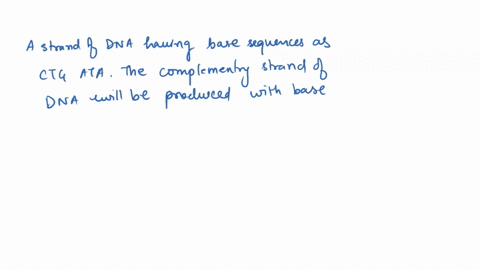 A strand of DNA having base sequences as
CTG ATA. The complementry strand of
DNA will be produced with base